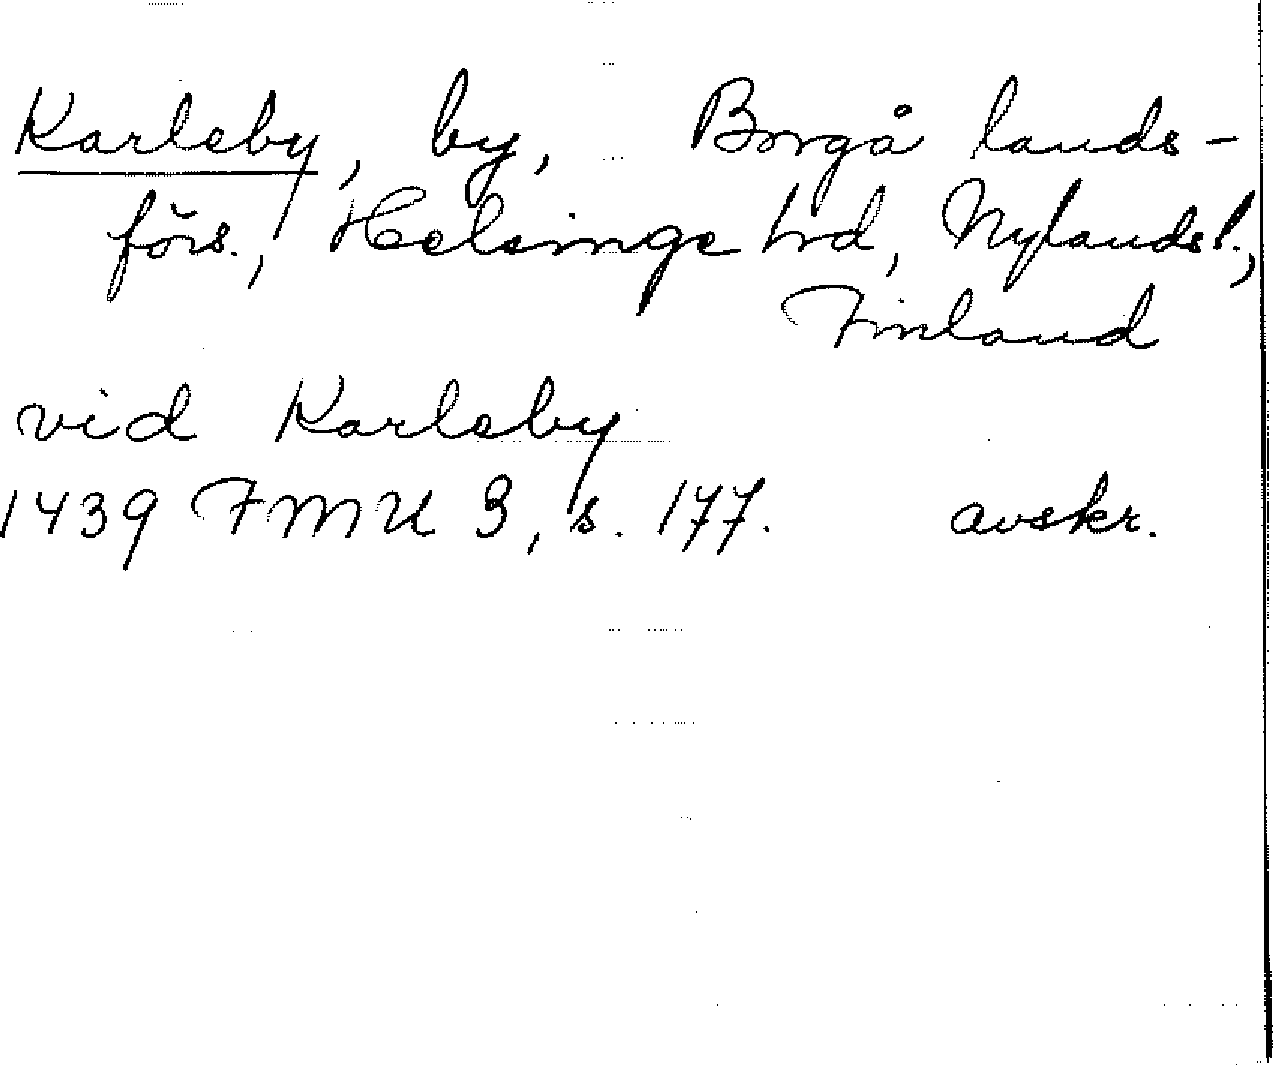 Karlsby, by, Borgå lands-
förs., Helsinge hrd, Nylands l.,
Finland
vid Karlsby
1439 FMU 3, s. 177. avskr.